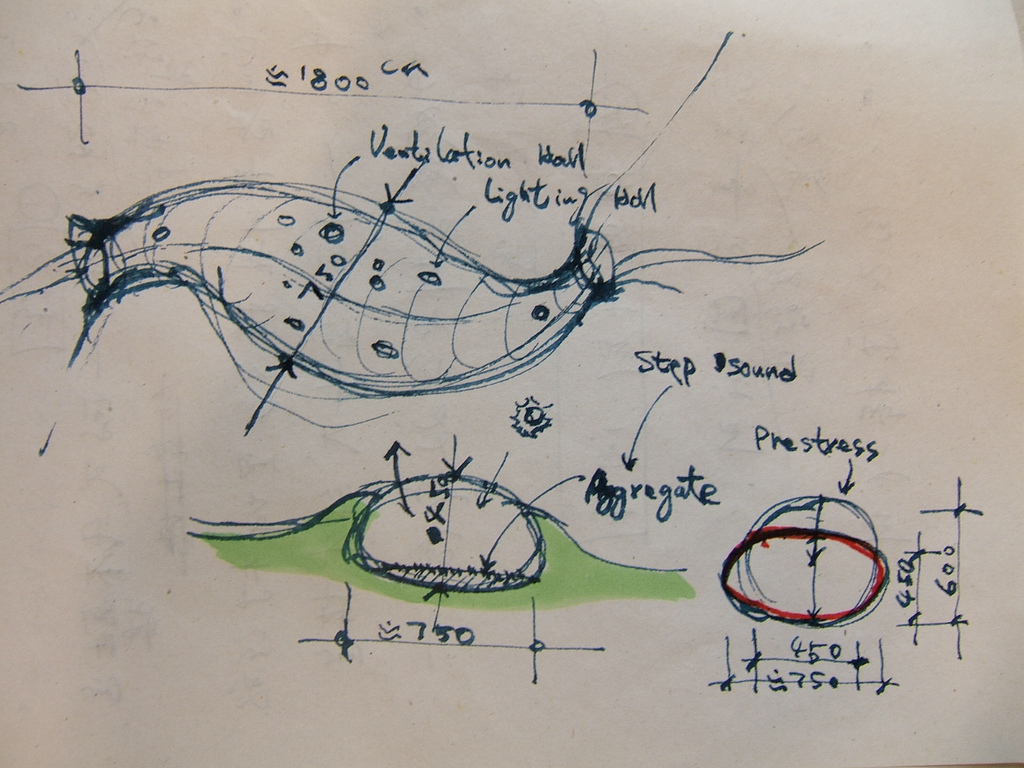 ≒1800 cm
Ventilation Holl
Lighting Holl
≒750
Step sound
Prestress
Aggregate
450
600
≒750
450
≒750